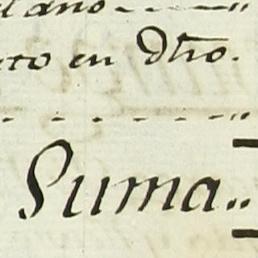 ano
to en Dho.
Suma